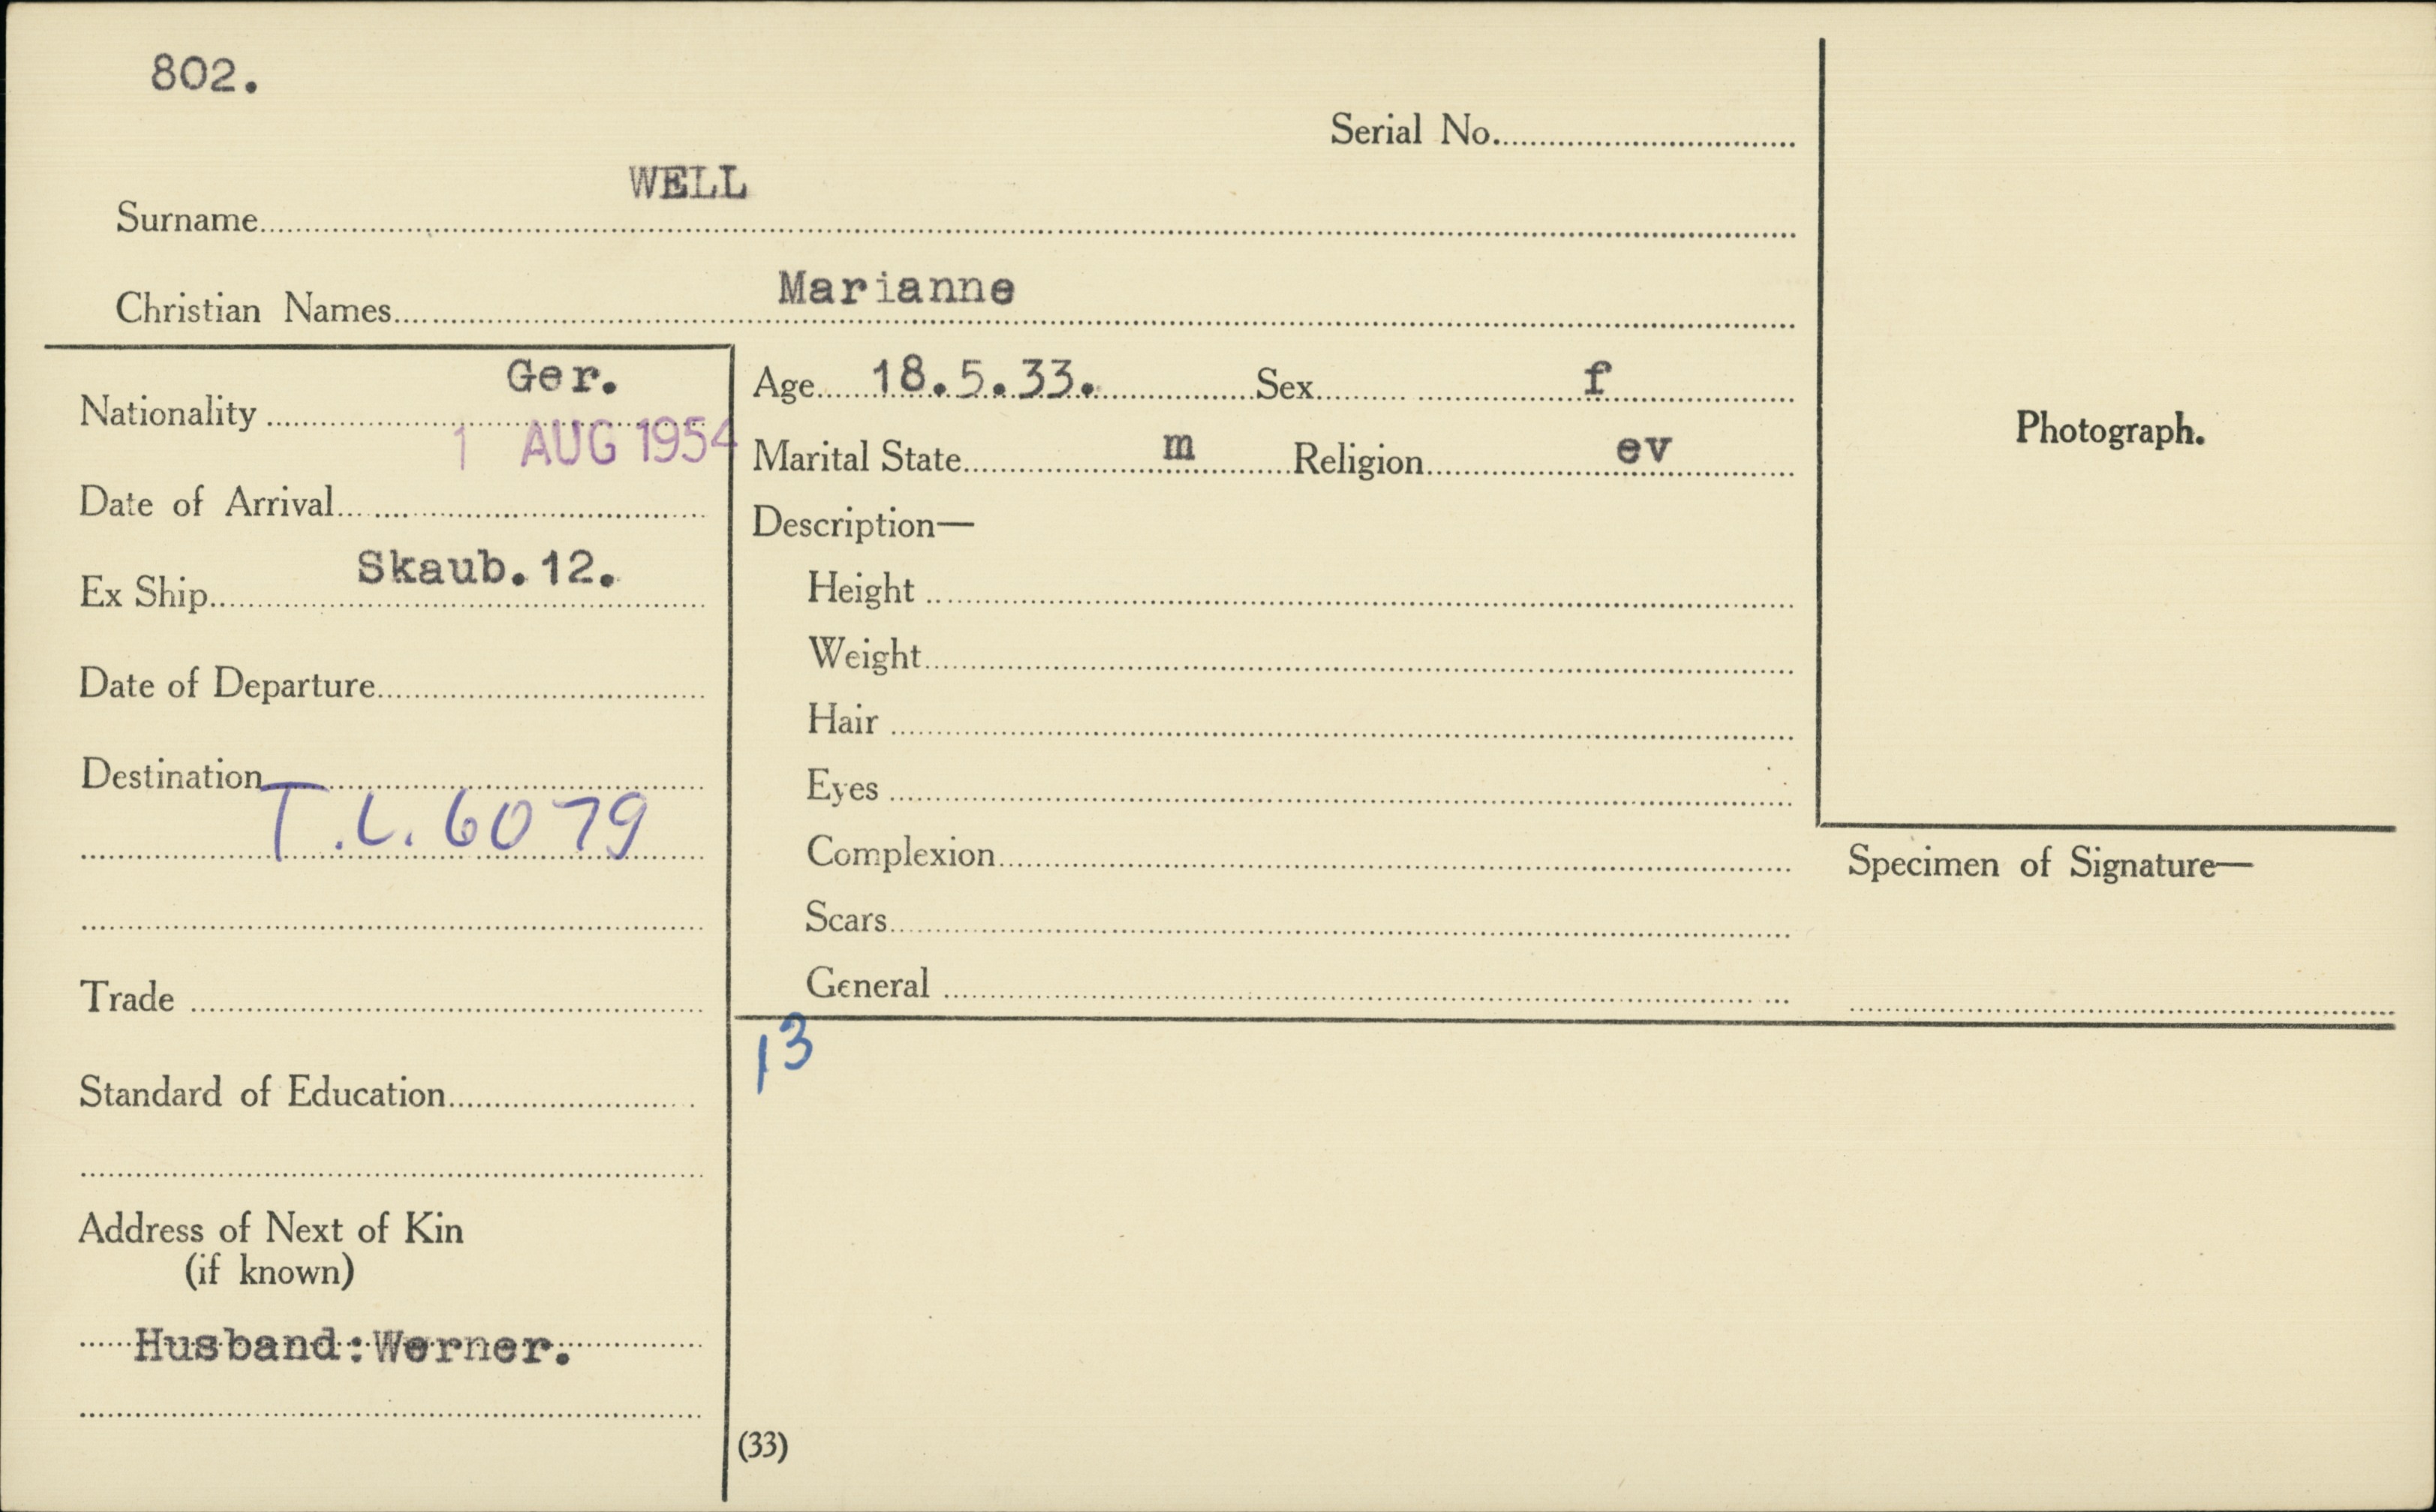 802.
Serial No.
WELL
Surname
Marianne
Christian Names
Ger.
Nationality
1 AUG 1954
Date of Arrival
Skaub.12.
Ex Ship
Date of Departure
Destination
T.L. 6079
Trade
Standard of Education
Address of Next of Kin
(if known)
Husband:Werner.
Age 18.5.33. Sex f
Marital State m Religion ev
Description—
Height
Weight
Hair
Eyes
Complexion
Scars
General
13
(33)
Photograph.
Specimen of Signature—